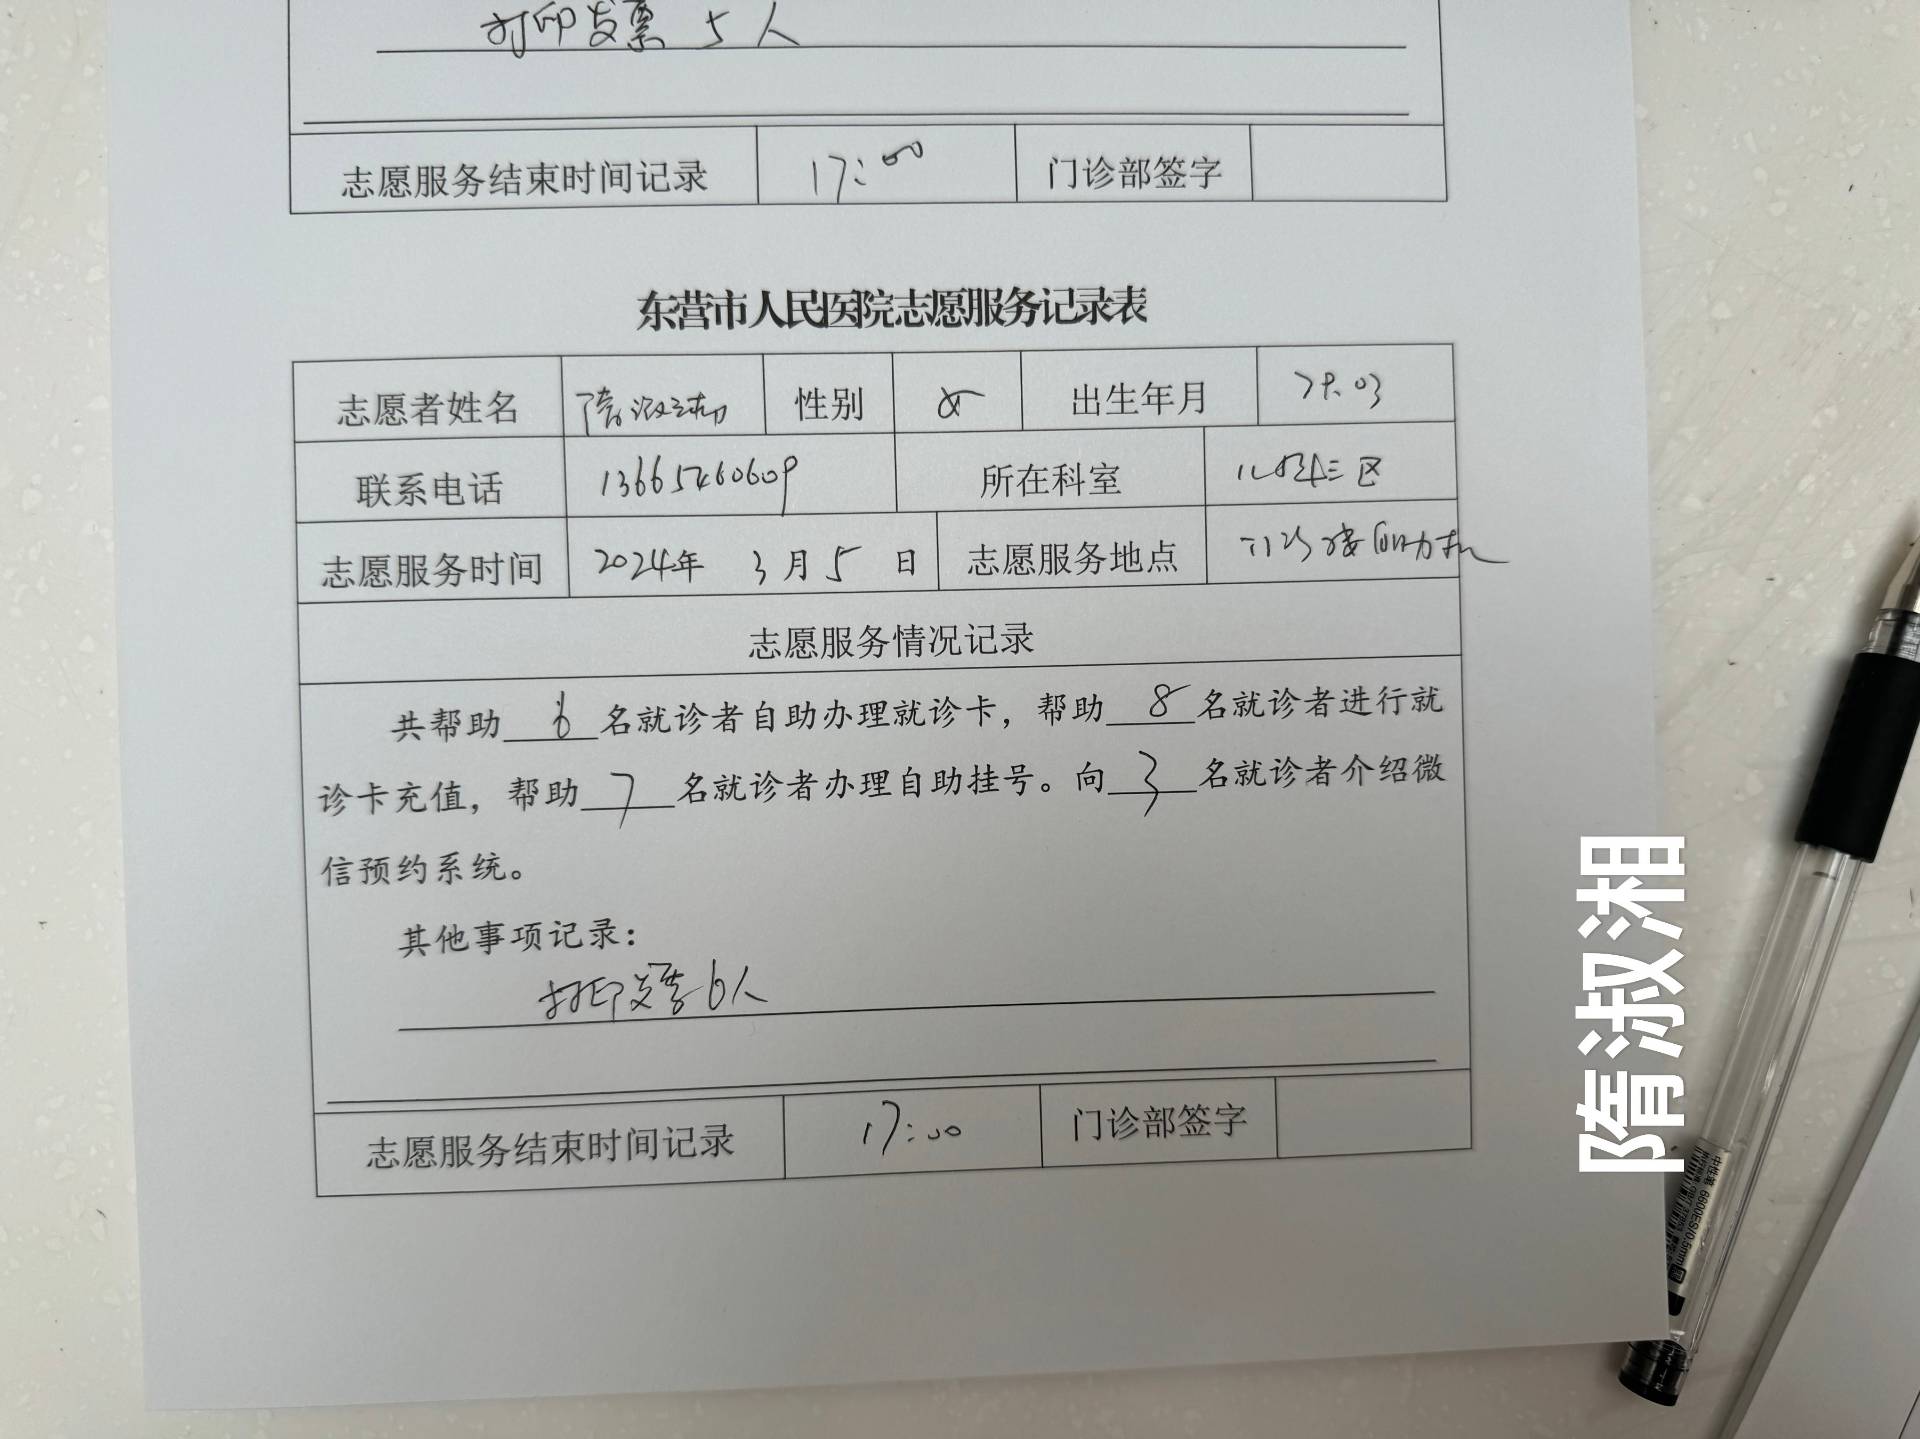 打印发票 5人
志愿服务结束时间记录 17:00 门诊部签字
东营市人民医院志愿服务记录表
志愿者姓名 隋淑湘 性别 女 出生年月
联系电话 13665460609 所在科室 儿科三区
志愿服务时间 2024年 3月5日 志愿服务地点 门诊楼自助机
志愿服务情况记录
共帮助 6 名就诊者自助办理就诊卡，帮助 8 名就诊者进行就
诊卡充值，帮助 7 名就诊者办理自助挂号。向 3 名就诊者介绍微
信预约系统。
其他事项记录：
打印发票6人
志愿服务结束时间记录 17:00 门诊部签字
隋淑湘
中性笔 6600ES/0.5mm